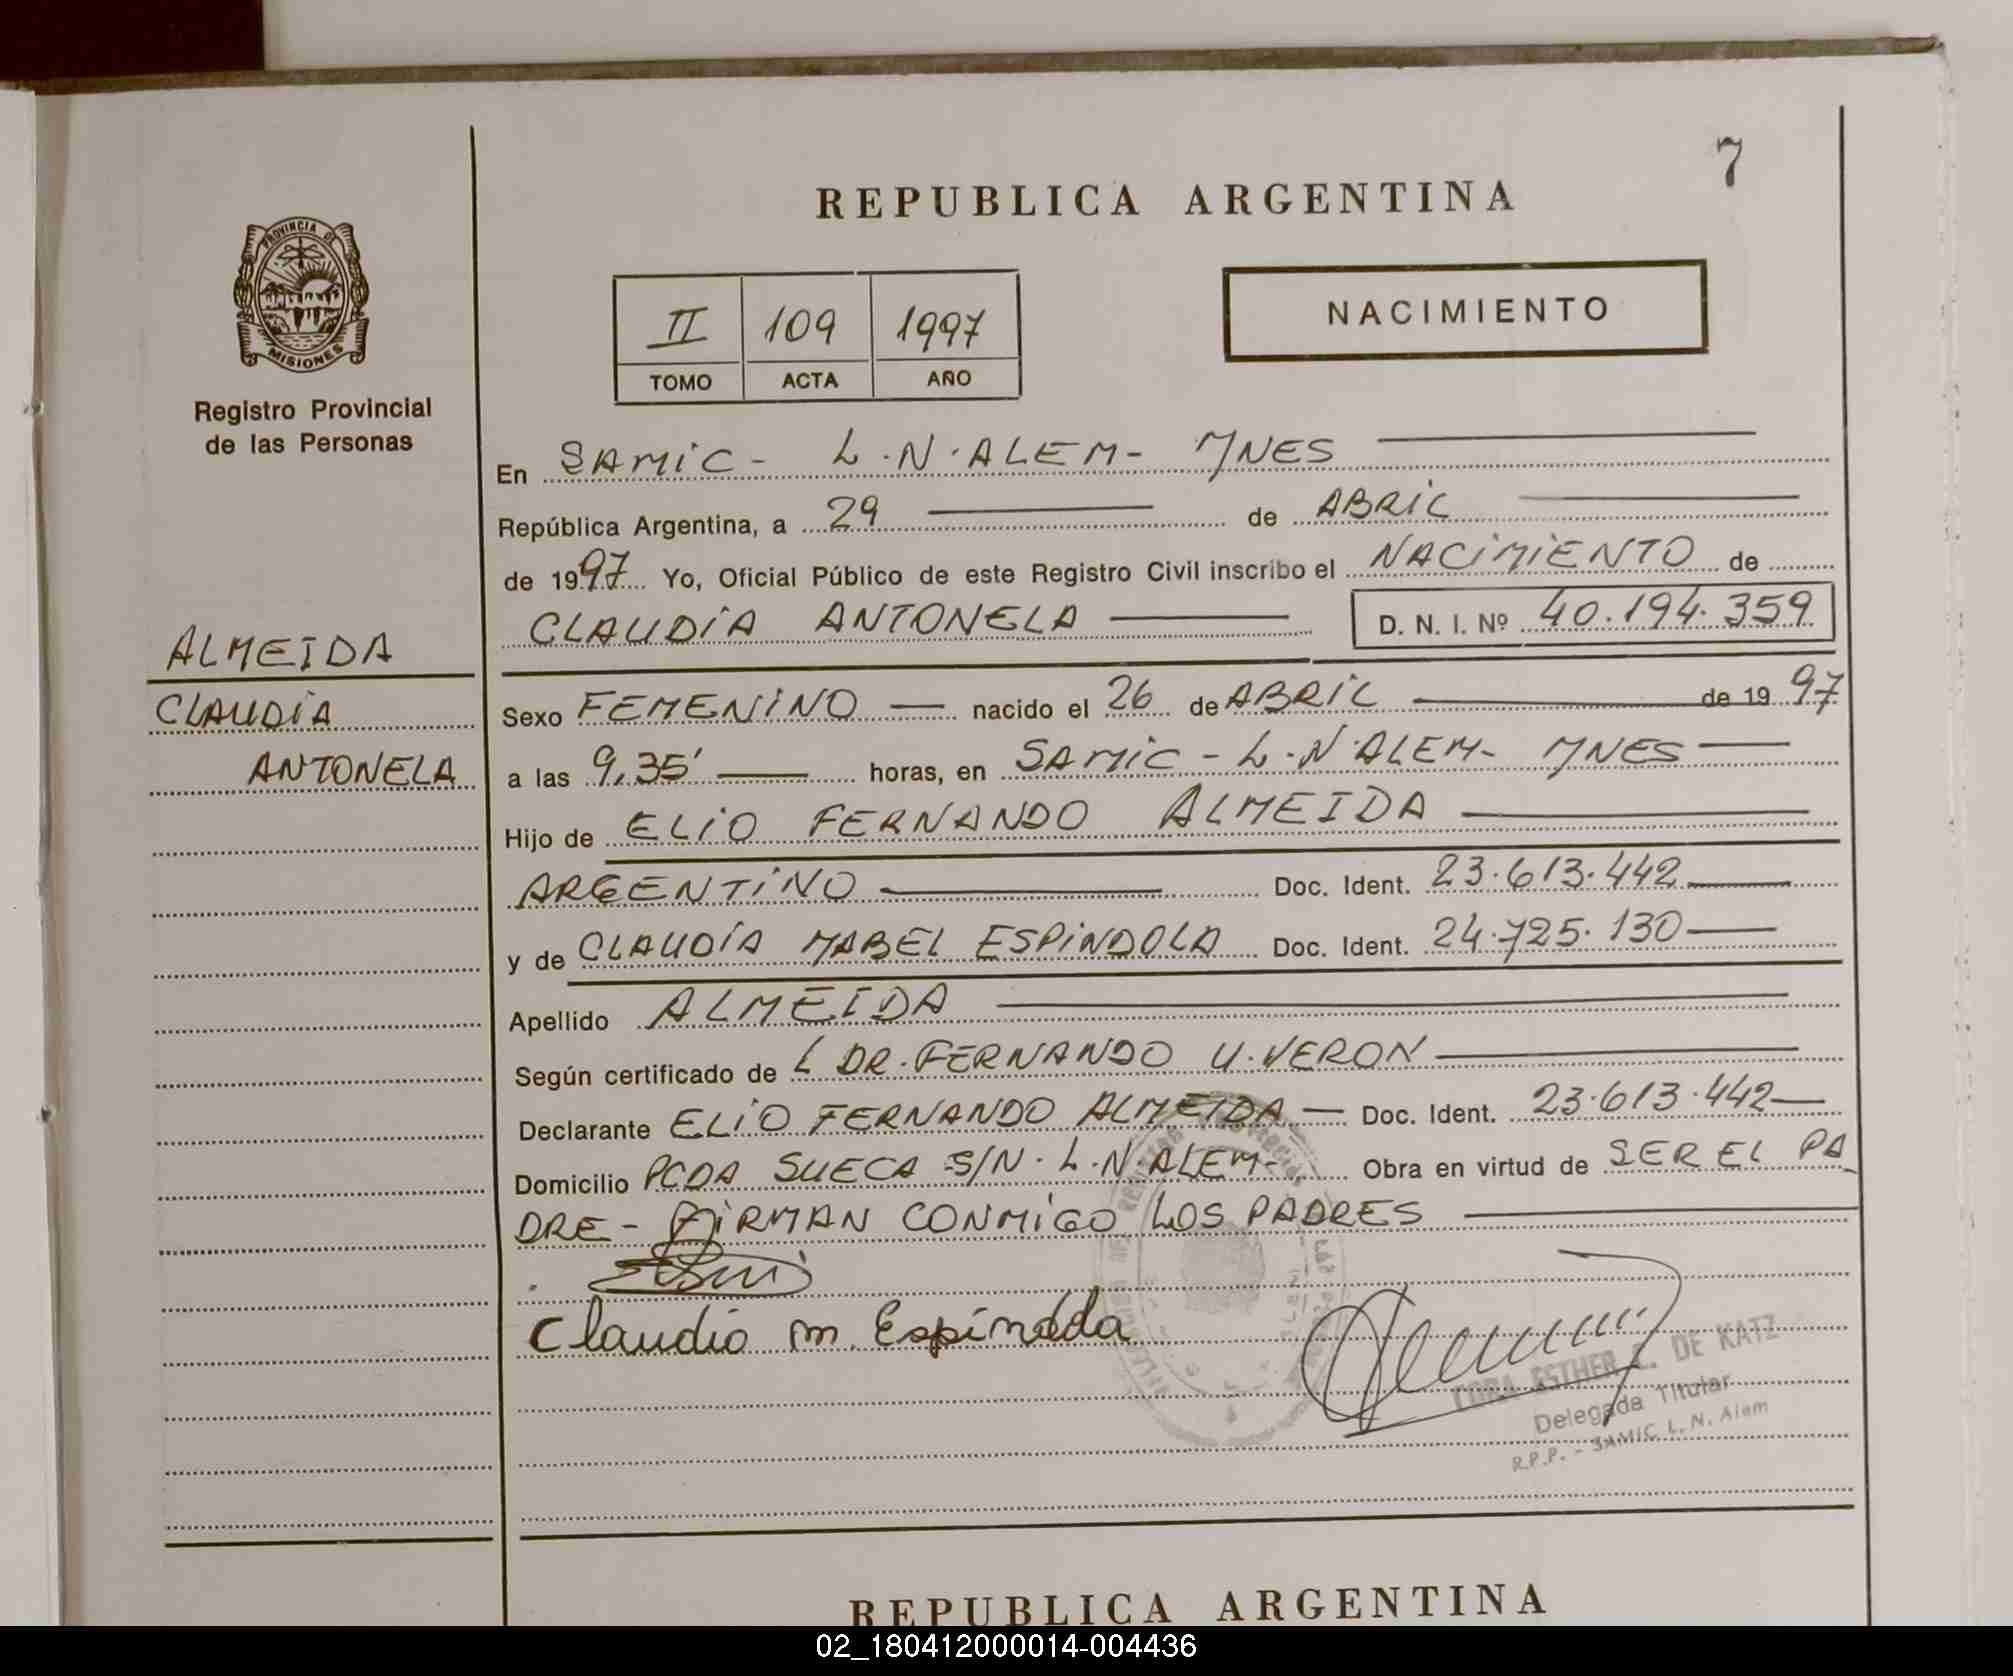 7
REPUBLICA ARGENTINA
PROVINCIA DE
MISIONES
Registro Provincial
de las Personas
II 109 1997
TOMO ACTA AÑO
NACIMIENTO
En SAMIC - L.N.ALEM - MNES
República Argentina, a 29 de ABRIL
de 1997 Yo, Oficial Público de este Registro Civil inscribo el NACIMIENTO de
CLAUDIA ANTONELA D. N. I. Nº 40.194.359
ALMEIDA
CLAUDIA
ANTONELA
Sexo FEMENINO nacido el 26 de ABRIL de 1997
a las 9,35' horas, en SAMIC - L.N ALEM - MNES
Hijo de ELIO FERNANDO ALMEIDA
ARGENTINO Doc. Ident. 23.613.442
y de CLAUDIA MABEL ESPINDOLA Doc. Ident. 24.725.130
Apellido ALMEIDA
Según certificado de L DR. FERNANDO U. VERON
Declarante ELIO FERNANDO ALMEIDA Doc. Ident. 23.613.442
Domicilio PCDA SUECA S/N. L.N.ALEM - Obra en virtud de SER EL PA
DRE - FIRMAN CONMIGO LOS PADRES
Claudia m. Espindola
ESTHER L. DE KATZ
Delegada Titular
R.P.P. - SAMIC L. N. Alem
REPUBLICA ARGENTINA
02_180412000014-004436